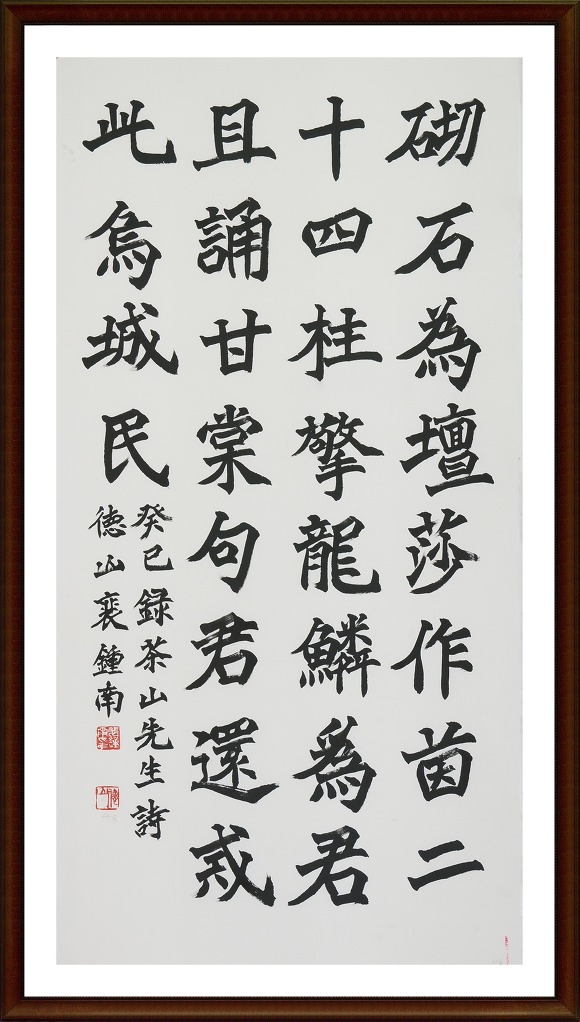 砌石為壇莎作茵二
十四柱擎龍鱗爲君
且誦甘棠句君還惑
此烏城民
癸巳錄茶山先生詩
德山裵鍾南